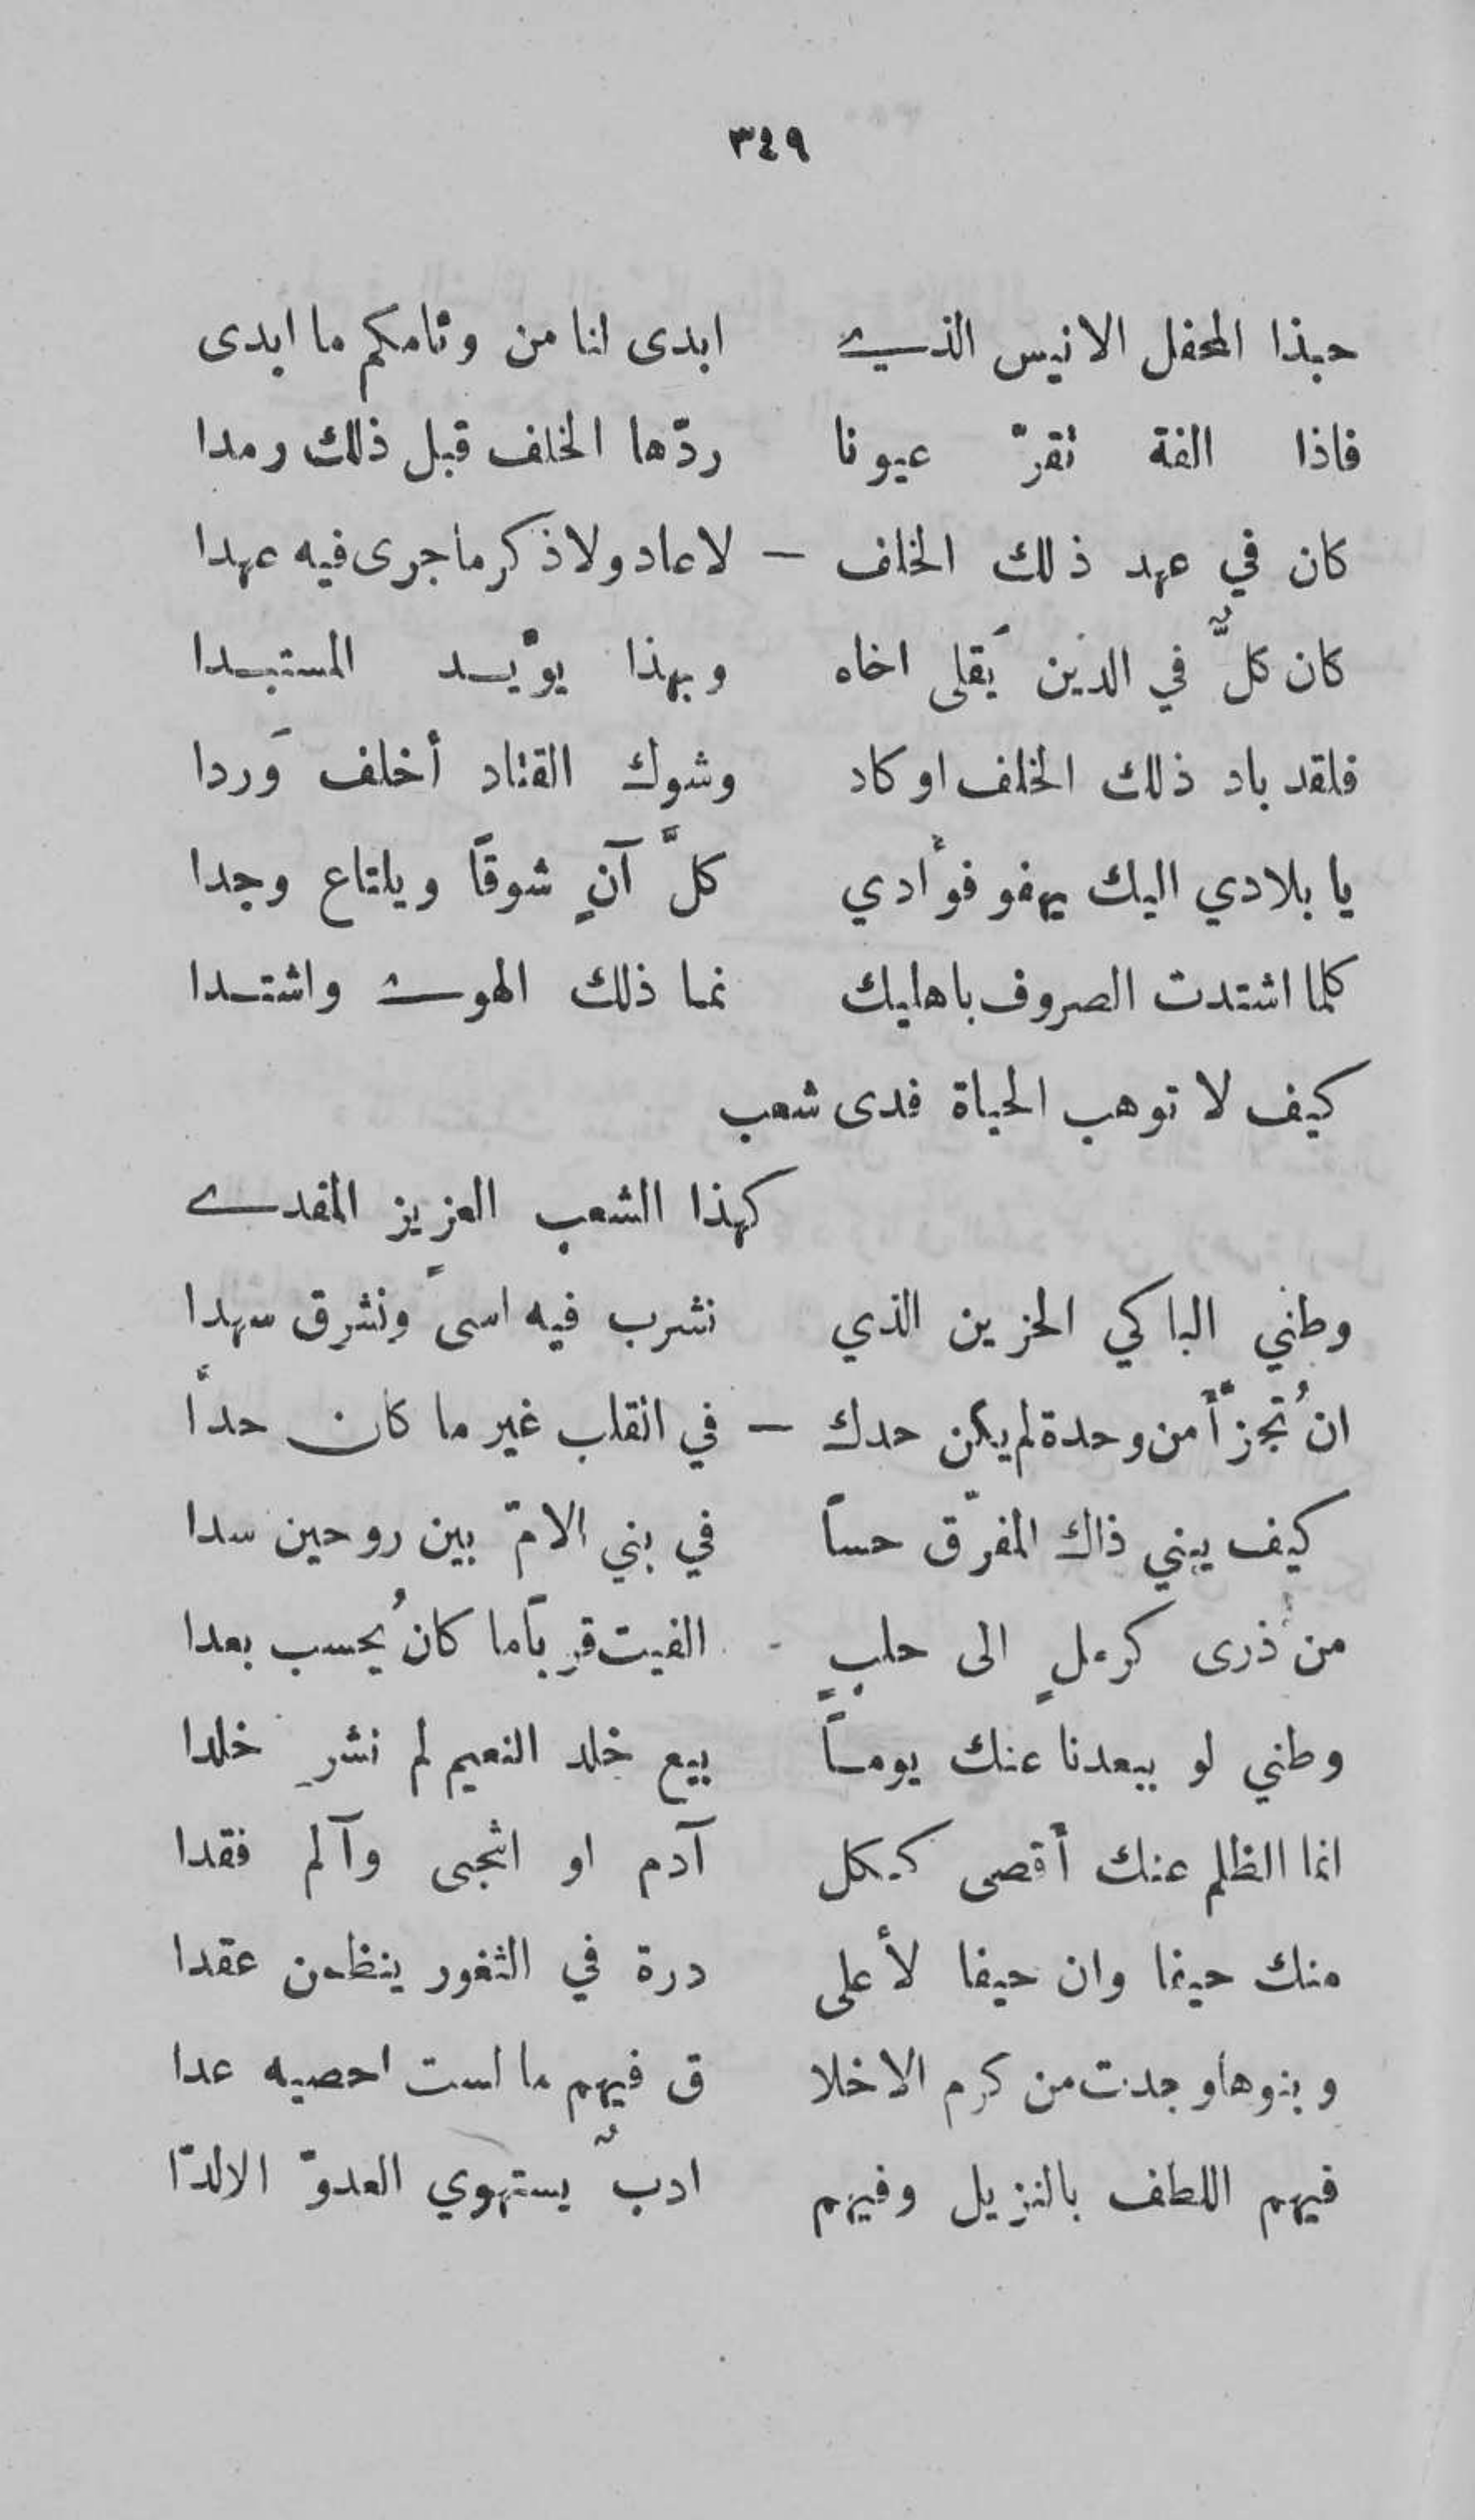 ٣٤٩
حبذا المحفل الانيس الذي ابدى لنا من وئامكم ما ابدى
فاذا الفة تقرّ عيونا ردّها الخلف قبل ذلك رمدا
كان في عهد ذلك الخلف — لا عاد ولا ذكر ما جرى فيه عهدا
كان كلٌّ في الدين يَقلى اخاه وبهذا يؤيد المستبدا
فلقد باد ذلك الخلف او كاد وشوك القتاد أخلف وَردا
يا بلادي اليك يهفو فؤادي كلَّ آنٍ شوقًا ويلتاع وجدا
كلما اشتدت الصروف باهليك نما ذلك الهوى واشتدا
كيف لا توهب الحياة فدى شعب
كهذا الشعب العزيز المفدى
وطني الباكي الحزين الذي نشرب فيه اسىً ونشرق سهدا
ان تُجزّأ من وحدة لم يكن حدك — في القلب غير ما كان حدًا
كيف يبني ذاك المفرّق حسًا في بني الامّ بين روحين سدا
من ذُرى كرملٍ الى حلبٍ الفيت قربًا ما كان يُحسب بعدا
وطني لو ببعدنا عنك يومًا بيع خلد النعيم لم نشرِ خلدا
انما الظلم عنك أقصى ككل آدم او اشجى وآلم فقدا
منك حيفا وان حيفا لأعلى درة في الثغور ينظمن عقدا
وبنوها وجدت من كرم الاخلا ق فيهم ما لست احصيه عدا
فيهم اللطف بالنزيل وفيهم ادبٌ يستهوي العدوّ الالدّا